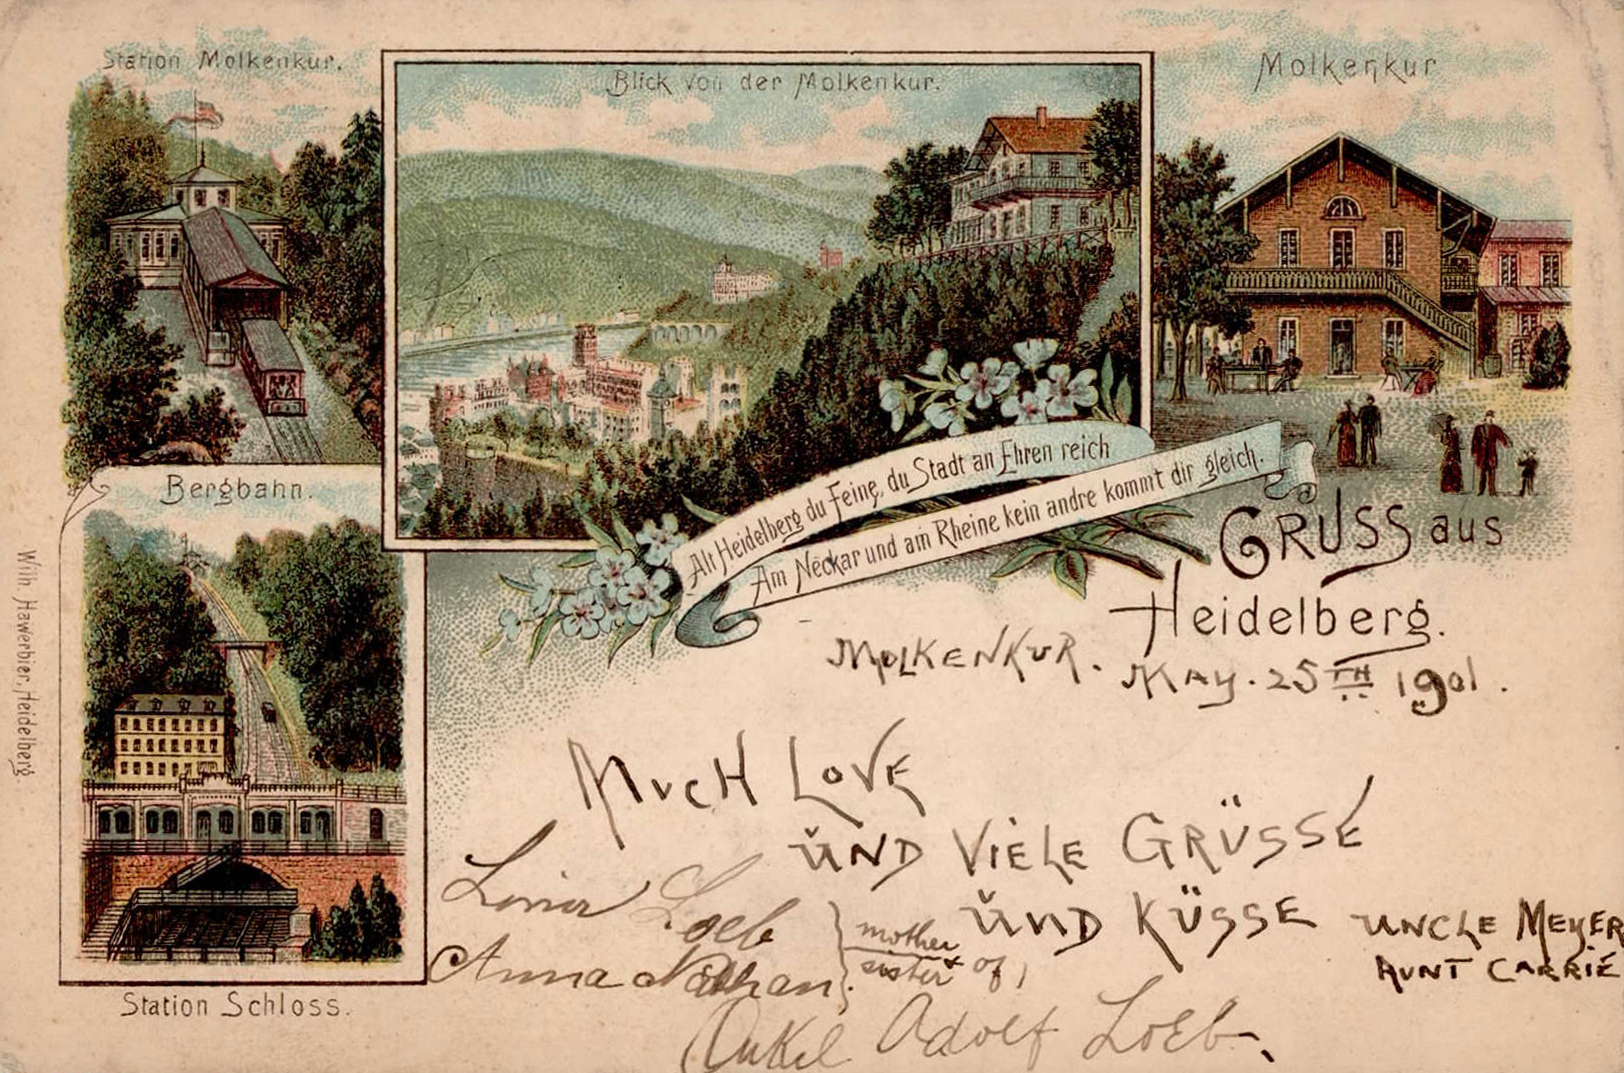 Station Molkenkur.
Blick von der Molkenkur.
Molkenkur
Bergbahn.
Alt Heidelberg du Feine, du Stadt an Ehren reich
Am Neckar und am Rheine kein andre kommt dir gleich.
GRUSS aus
Heidelberg.
Wilh. Hawerbier, Heidelberg
Station Schloss.
MOLKENKUR. MAY. 25TH 1901.
MUCH LOVE
UND VIELE GRÜSSE
UND KÜSSE
UNCLE MEYER
AUNT CARRIE
Loeb
Anna Nathan
mother
sister of
Onkel Adolf Loeb.